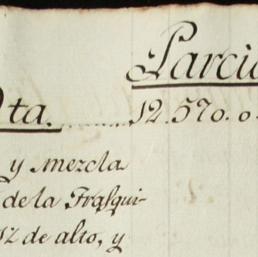 Parci
ta. 12.570.0
y mezcla
de la Frasqui-
12 de alto, y